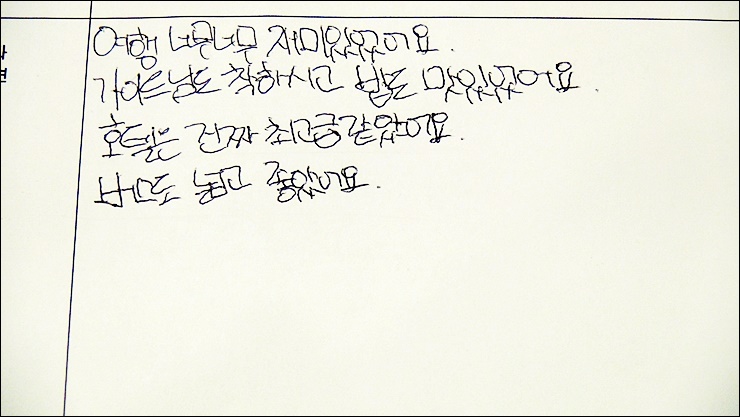 여행 너무너무 재미있었어요.
가이드님도 착하시고 밥도 맛있었어요.
호텔은 진짜 최고급같았어요.
버스도 넓고 좋았어요.